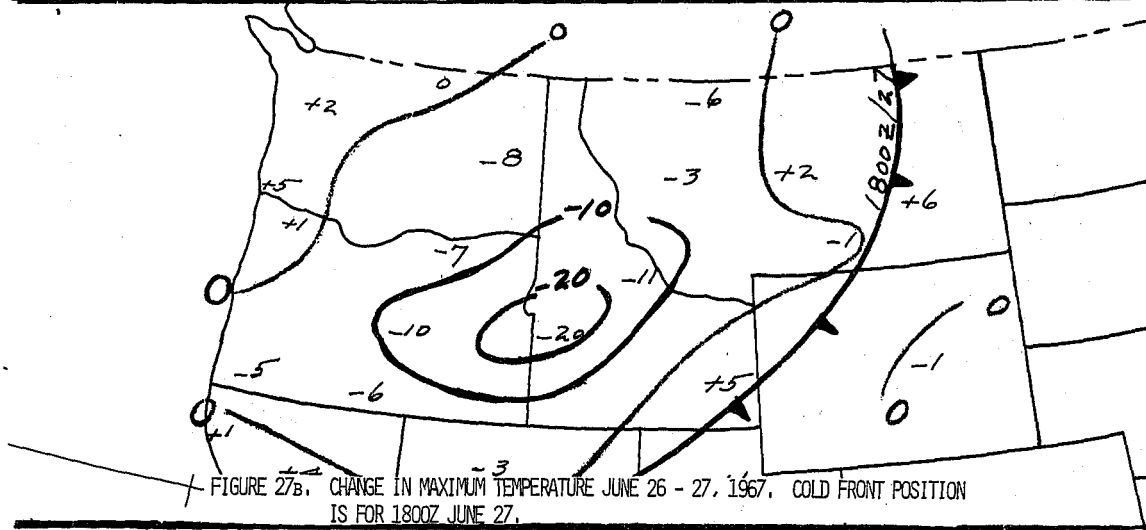 0 0
0
+2
-6
-8
-3
+2
1800Z/27
+6
+5
+1
-10
-7
-11
-1
0
-20
-10
-20
0
-1
-5
-6
+5
0
+1
0
-3
FIGURE 27B. CHANGE IN MAXIMUM TEMPERATURE JUNE 26 - 27, 1967. COLD FRONT POSITION
IS FOR 1800Z JUNE 27.